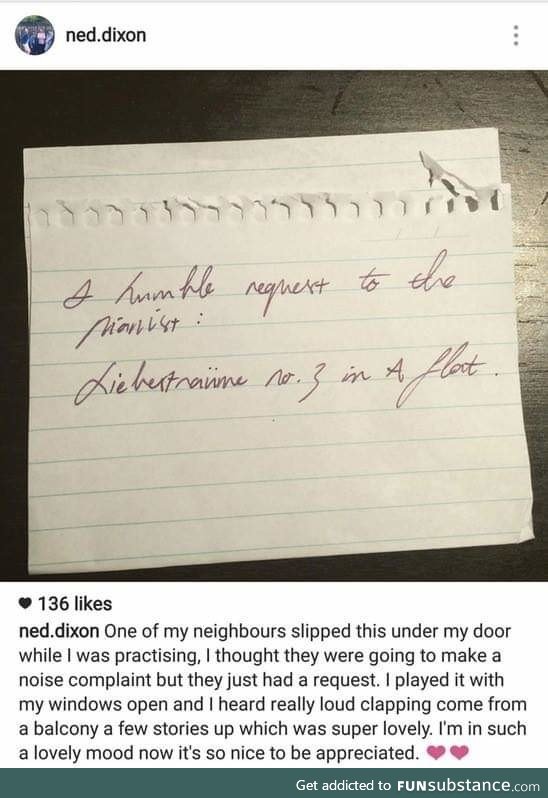 ned.dixon
A humble request to the
pianist:
Liebesträume no. 3 in A flat.
136 likes
ned.dixon One of my neighbours slipped this under my door
while I was practising, I thought they were going to make a
noise complaint but they just had a request. I played it with
my windows open and I heard really loud clapping come from
a balcony a few stories up which was super lovely. I'm in such
a lovely mood now it's so nice to be appreciated. 💕
Get addicted to FUNsubstance.com